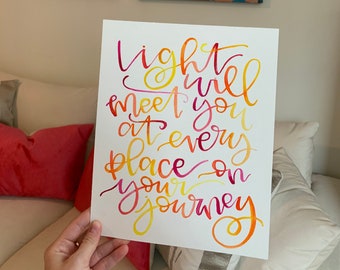 light
will
meet you
at every
place on
your
journey